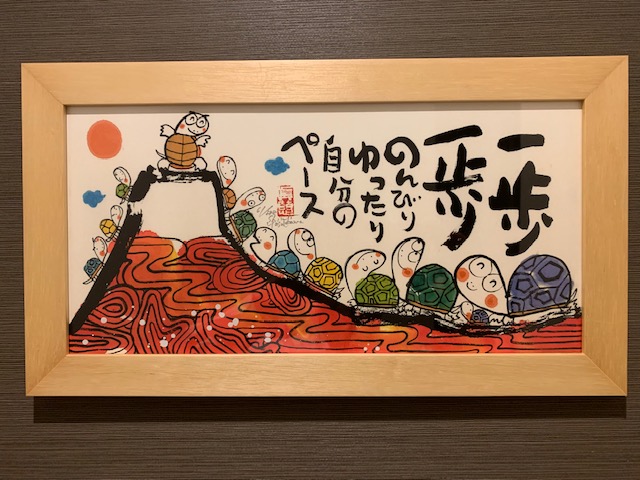 一歩
一歩
のんびり
ゆったり
自分の
ペース